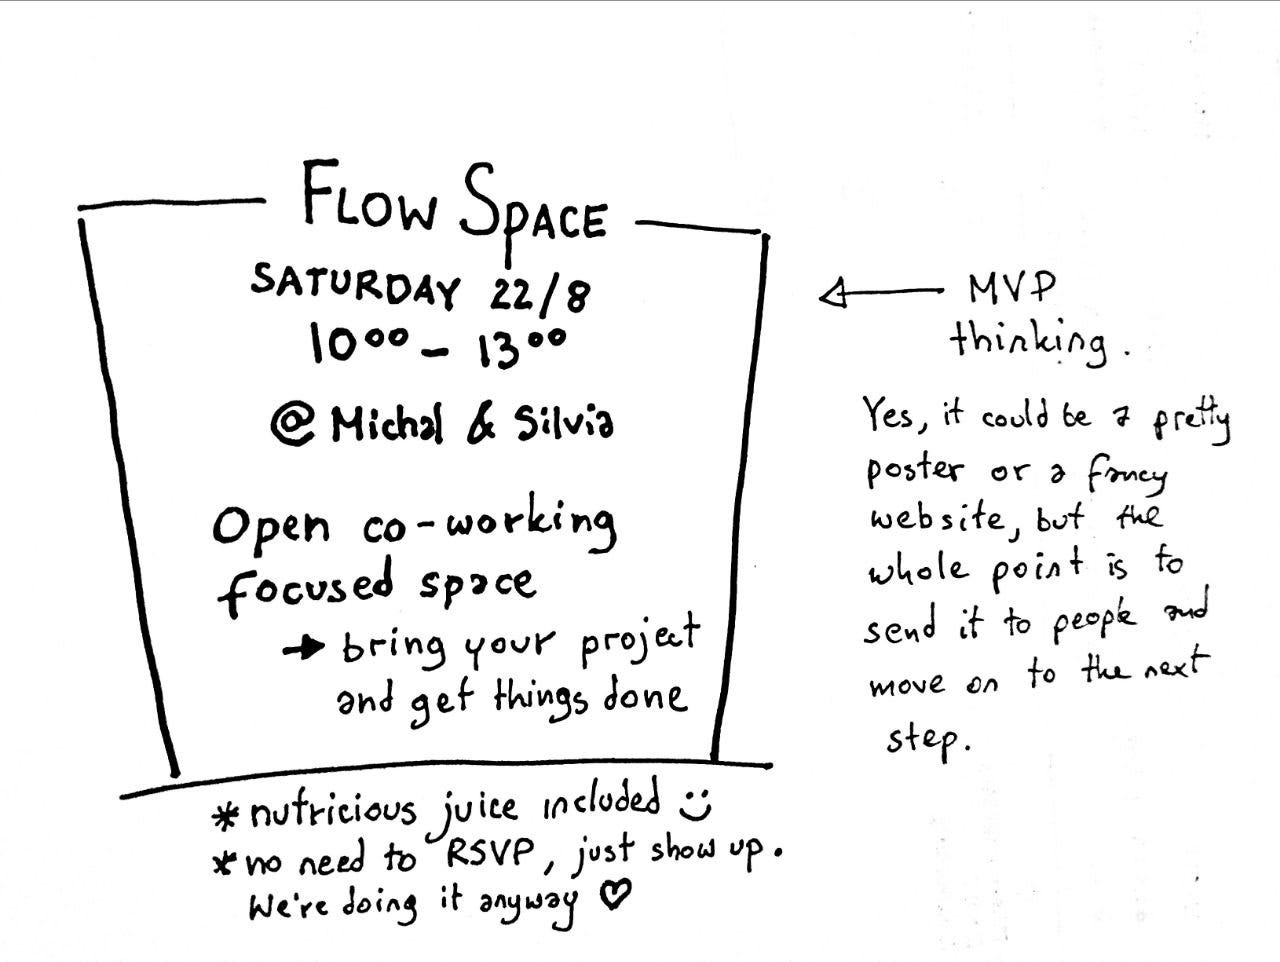 FLOW SPACE
SATURDAY 22/8
10⁰⁰ – 13⁰⁰
@ Michal & Silvia
Open co-working
focused space
→ bring your project
and get things done
* nutricious juice included :)
* no need to RSVP, just show up.
We're doing it anyway ♡
← MVP
thinking.
Yes, it could be a pretty
poster or a fancy
website, but the
whole point is to
send it to people and
move on to the next
step.